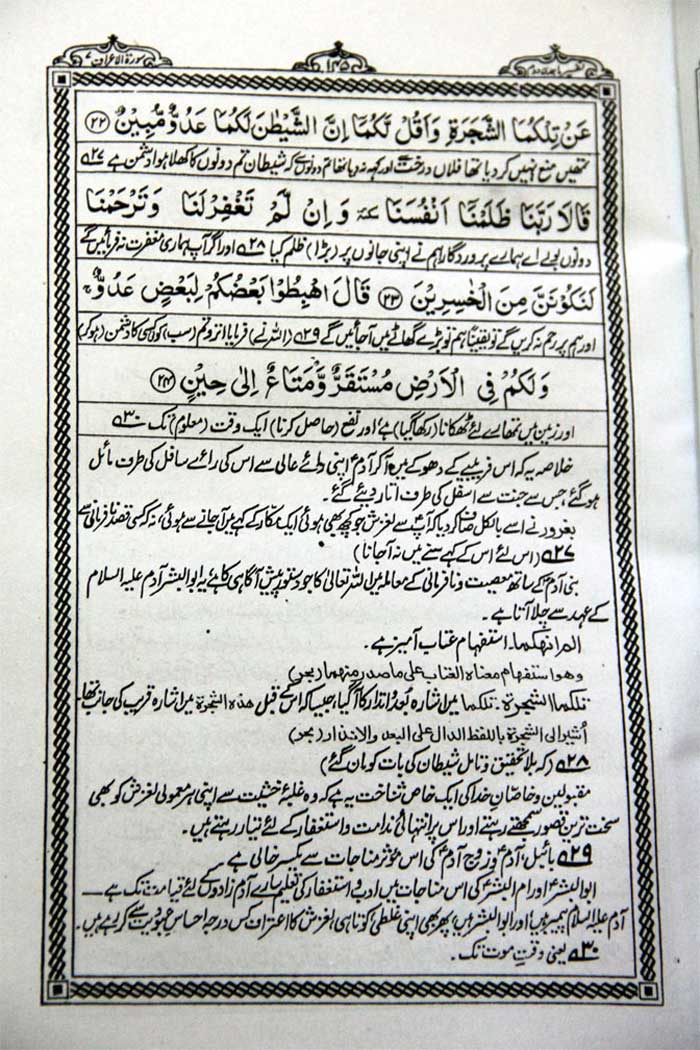 سورۃ الاعراف ۷
۱۴۵
تفسیر ماجدی دوم
عَنْ تِلْكُمَا الشَّجَرَةِ وَاَقُلْ لَّكُمَا اِنَّ الشَّيْطٰنَ لَكُمَا عَدُوٌّ مُّبِيْنٌ ﴿۲۲﴾
تمھیں منع نہیں کر دیا تھا فلاں درخت سے اور کہہ نہ دیا تھا تم دونوں سے کہ شیطان تم دونوں کا کھلا ہوا دشمن ہے ۵۲۷
قَالَا رَبَّنَا ظَلَمْنَا اَنْفُسَنَا ٚ وَاِنْ لَّمْ تَغْفِرْلَنَا وَتَرْحَمْنَا
دونوں بولے اے ہمارے پروردگار ہم نے اپنی جانوں پر (بڑا) ظلم کیا ۵۲۸ اور اگر آپ ہماری مغفرت نہ فرمائیں گے
لَنَكُوْنَنَّ مِنَ الْخٰسِرِيْنَ ﴿۲۳﴾ قَالَ اهْبِطُوْا بَعْضُكُمْ لِبَعْضٍ عَدُوٌّ ۚ
اور ہم پر رحم نہ کریں گے تو یقیناً ہم تو بڑے گھاٹے میں آجائیں گے ۵۲۹ (اللہ نے) فرمایا اترو تم (سب) کوئی کسی کا دشمن (ہوکر)
وَلَكُمْ فِى الْاَرْضِ مُسْتَقَرٌّ وَّمَتَاعٌ اِلٰى حِيْنٍ ﴿۲۴﴾
اور زمین میں تمھارے لئے ٹھکانا (رکھا گیا) ہے اور نفع (حاصل کرنا) ایک وقت (معلوم) تک ۵۳۰
خلاصہ یہ کہ اس فریبیے کے دھوکے میں آکر آدمؑ اپنی رائے عالی سے اس کی رائے سافل کی طرف مائل
ہو گئے، جس سے جنت سے اسفل کی طرف اتار دیئے گئے۔
بغرور نے اسے بالکل صاف کر دیا کہ آپؑ سے لغزش جو کچھ بھی ہوئی ایک مکار کے کہے میں آجانے سے ہوئی، نہ کہ کسی قصد نافرمانی سے
۵۲۷ (اس لئے اس کے کہے سنے میں نہ آجانا)
بنی آدمؑ کے ساتھ معصیت و نافرمانی کے معاملہ میں اللہ تعالیٰ کا جو دستور پیش آگاہی کا ہے یہ ابو البشر آدم علیہ السلام
کے عہد سے چلا آتا ہے۔
الم انھکما۔ استفہام عتاب آمیز ہے۔
وھو استفھام معناہ العتاب علی ما صدر منھما (بحر)
تلکما الشجرۃ۔ تلکما میں اشارہ بُعد و انذار کا آگیا، جیسا کہ اس کے قبل ھذہ الشجرۃ میں اشارہ قریب کی جانب تھا۔
اُشیر الی الشجرۃ باللفظ الدال علی البعد والانذار (بحر)
۵۲۸ (کہ بلا تحقیق و تامل شیطان کی بات کو مان گئے)
مقبولین و خاصانِ خدا کی ایک خاص شناخت یہ ہے کہ وہ غلبۂ خشیت سے اپنی ہر معمولی لغزش کو بھی
سخت ترین قصور سمجھتے رہتے اور اس پر انتہائی ندامت و استغفار کے لئے تیار رہتے ہیں۔
۵۲۹ بائبل، آدمؑ و زوج آدمؑ کی اس مؤثر مناجات سے یکسر خالی ہے
ابو البشرؑ اور ام البشرؑ کی اس مناجات میں ادب و استغفار کی تعلیم سارے آدم زادوں کے لئے قیامت تک ہے
آدم علیہ السلام پیمبر ہیں اور ابو البشر ہیں، پھر بھی اپنی غلطی، کوتاہی، لغزش کا اعتراف کس درجہ احساسِ عبودیت سے کر رہے ہیں۔
۵۳۰ یعنی وقتِ موت تک۔